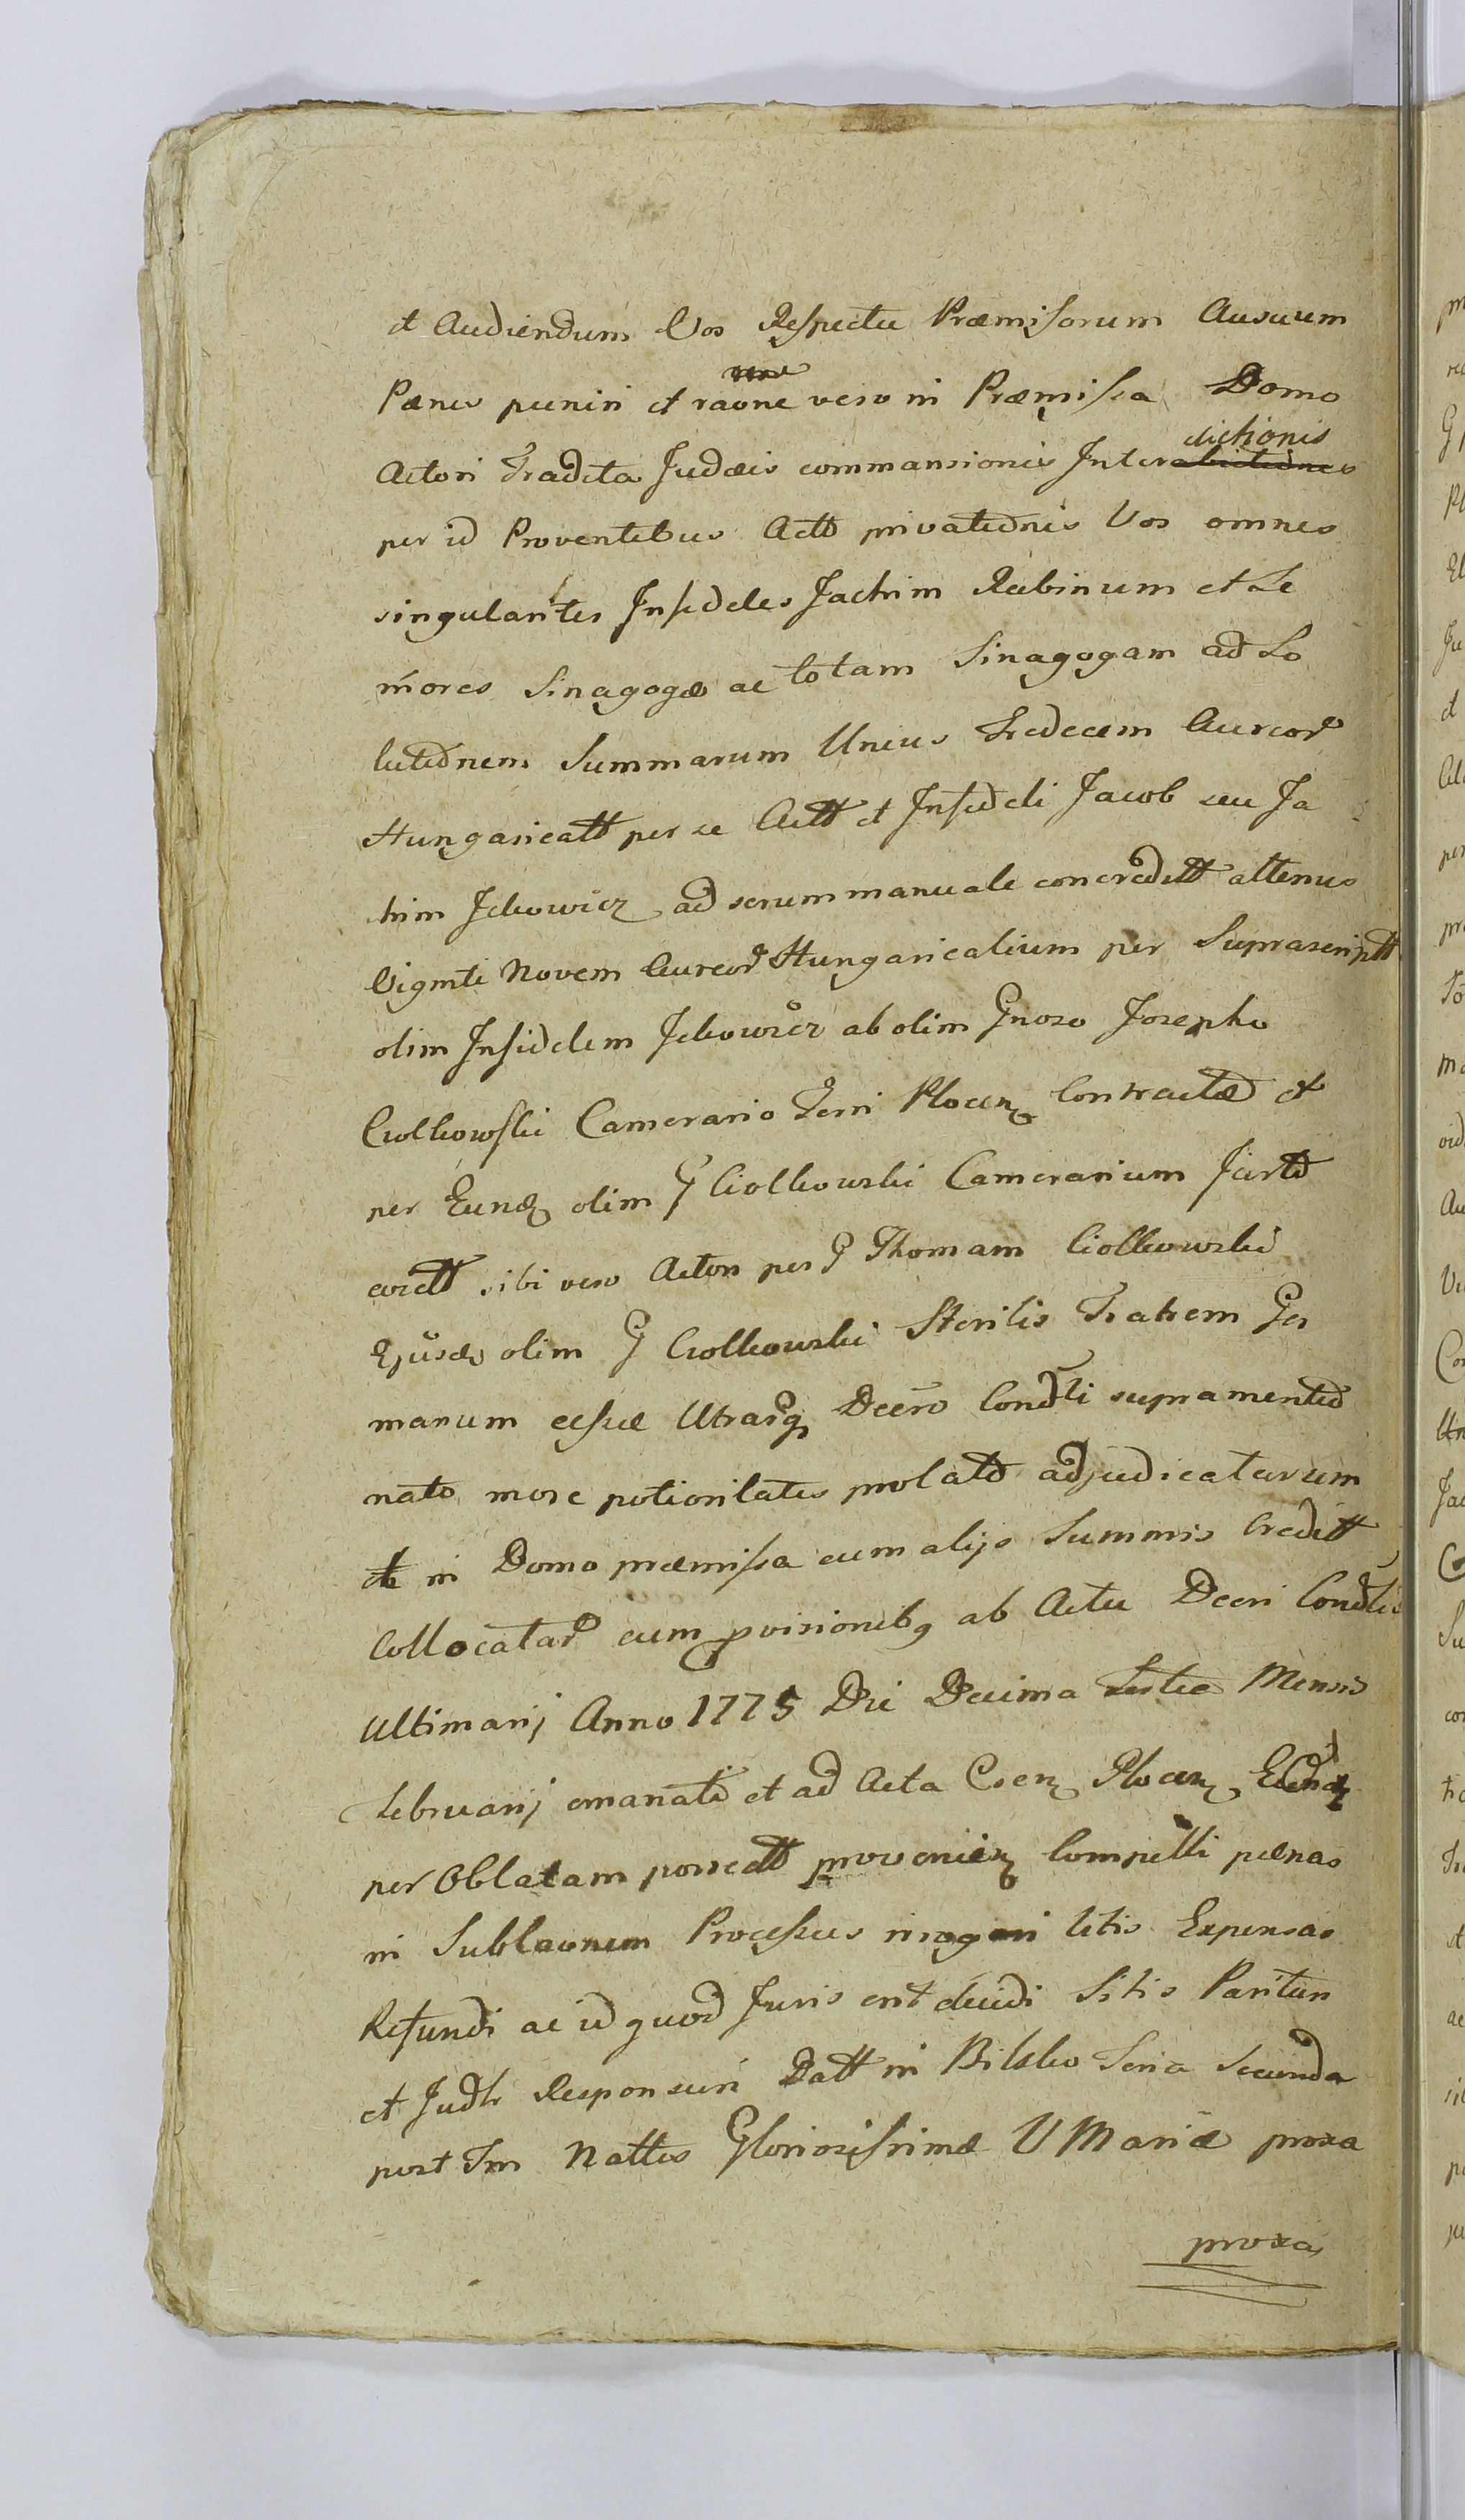 et Audiendum Vos Respectu Præmissorum Ausuum
Pænis puniri et raõne vero in Præmissa Domo
Actori Tradita Judæis commansionis Interdictionis
per id Proventibus Actõ privatiõnis Vos omnes
singulariter Infideles Jachim Rubinum et Se
niores Sinagogæ ac totam Sinagogam ad So
lutiõnem Summarum Unius Tredecem Aureorũ
Hungaricatt per se Actt et Infideli Jacob seu Ja
him Jckowicz ad serum manuale concreditt alterius
Viginti Novem Aureorũ Hungaricalium per Suprascriptt
olim Infidelem Jckowicz ab olim Gnoso Josepho
Ciolkowski Camerario Terri Plocen Contractæ et
per Eund olim G Ciolkowski Camerarium
sibi vero Actori per G Thomam Ciolkowski
Ejusd olim G Ciolkowski Sterilis Fratrem Ger
manum cessæ Utrarq Decro Condli supramentio
nato more potioritatis prolato adjudicatarum
et in Domo præmissa cum alijs Summis Creditt
Collocatarũ cum provisionibq ab Actu Decri Condlis
Ultimarij Anno 1775 Die Decima Mensis
Februarij emanati et ad Acta Csen Plocen Eund
per Oblatam porrectt provenien Compelli pænas
in Sublaonem Processus irrogari litis Expensas
Refundi ac id quod Juris erit decidi Sitis Parituri
et Judlr Responsuri Datt in Bilsko Feria Secunda
post Fm Nattis Gloriosissimæ V Mariæ proxa
proxa